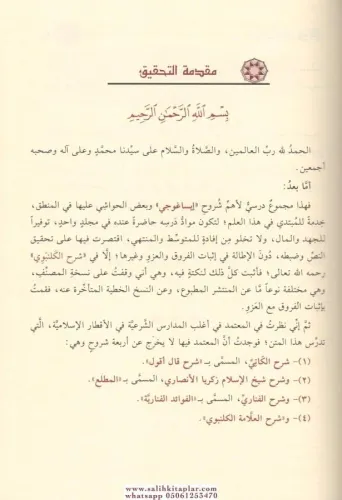 مقدمة التحقيق:
بِسْمِ اللَّهِ الرَّحْمَٰنِ الرَّحِيمِ
الحمدُ لله ربِّ العالمين، والصَّلاةُ والسَّلام على سيِّدنا محمَّدٍ وعلى آله وصحبه
أجمعين.
أمَّا بعدُ:
فهذا مجموعٌ درسيٌّ لأهمِّ شُروحِ «إيساغوجي» وبعض الحواشي عليها في المنطق،
خدمةً للمُبتدي في هذا العلم؛ لتكون موادُّ دَرسِه حاضرةً عنده في مجلدٍ واحدٍ، توفيراً
للجهد والمال، ولا تخلو مِن إفادةٍ للمتوسِّط والمنتهي، اقتصرت فيها على تحقيق
النصِّ وضبطه، دُونَ الإطالة في إثبات الفروق والعزو وغيرها؛ إلَّا في «شرح الكلنبوي»
رحمه الله تعالى؛ فأثبت كلَّ ذلك لنكتةٍ فيه، وهي أني وقفتُ على نسخةِ المصنِّف،
وهي مختلفة نوعاً مَّا عن المنتشر المطبوع، وعن النسخ الخطية المتأخِّرة عنه، فقمتُ
بإثبات الفروق مع العَزوِ.
ثمَّ إنِّي نظرتُ في المعتمد في أغلب المدارس الشَّرعيَّة في الأقطار الإسلاميَّة، الَّتي
تدرِّس هذا المتن؛ فوجدتُ أنَّ المعتمد فيها لا يخرج عن أربعة شروحٍ وهي:
(١)- شرح الكَاتِيّ، المسمَّى بـ «شرح قال أقول».
(٢)- وشرح شيخ الإسلام زكريا الأنصاري، المسمَّى بـ «المطلع».
(٣)- وشرح الفناري، المسمَّى بـ «الفوائد الفناريَّة».
(٤)- و«شرح العلَّامة الكلنبوي».
www.salihkitaplar.com
whatsapp 05061253470